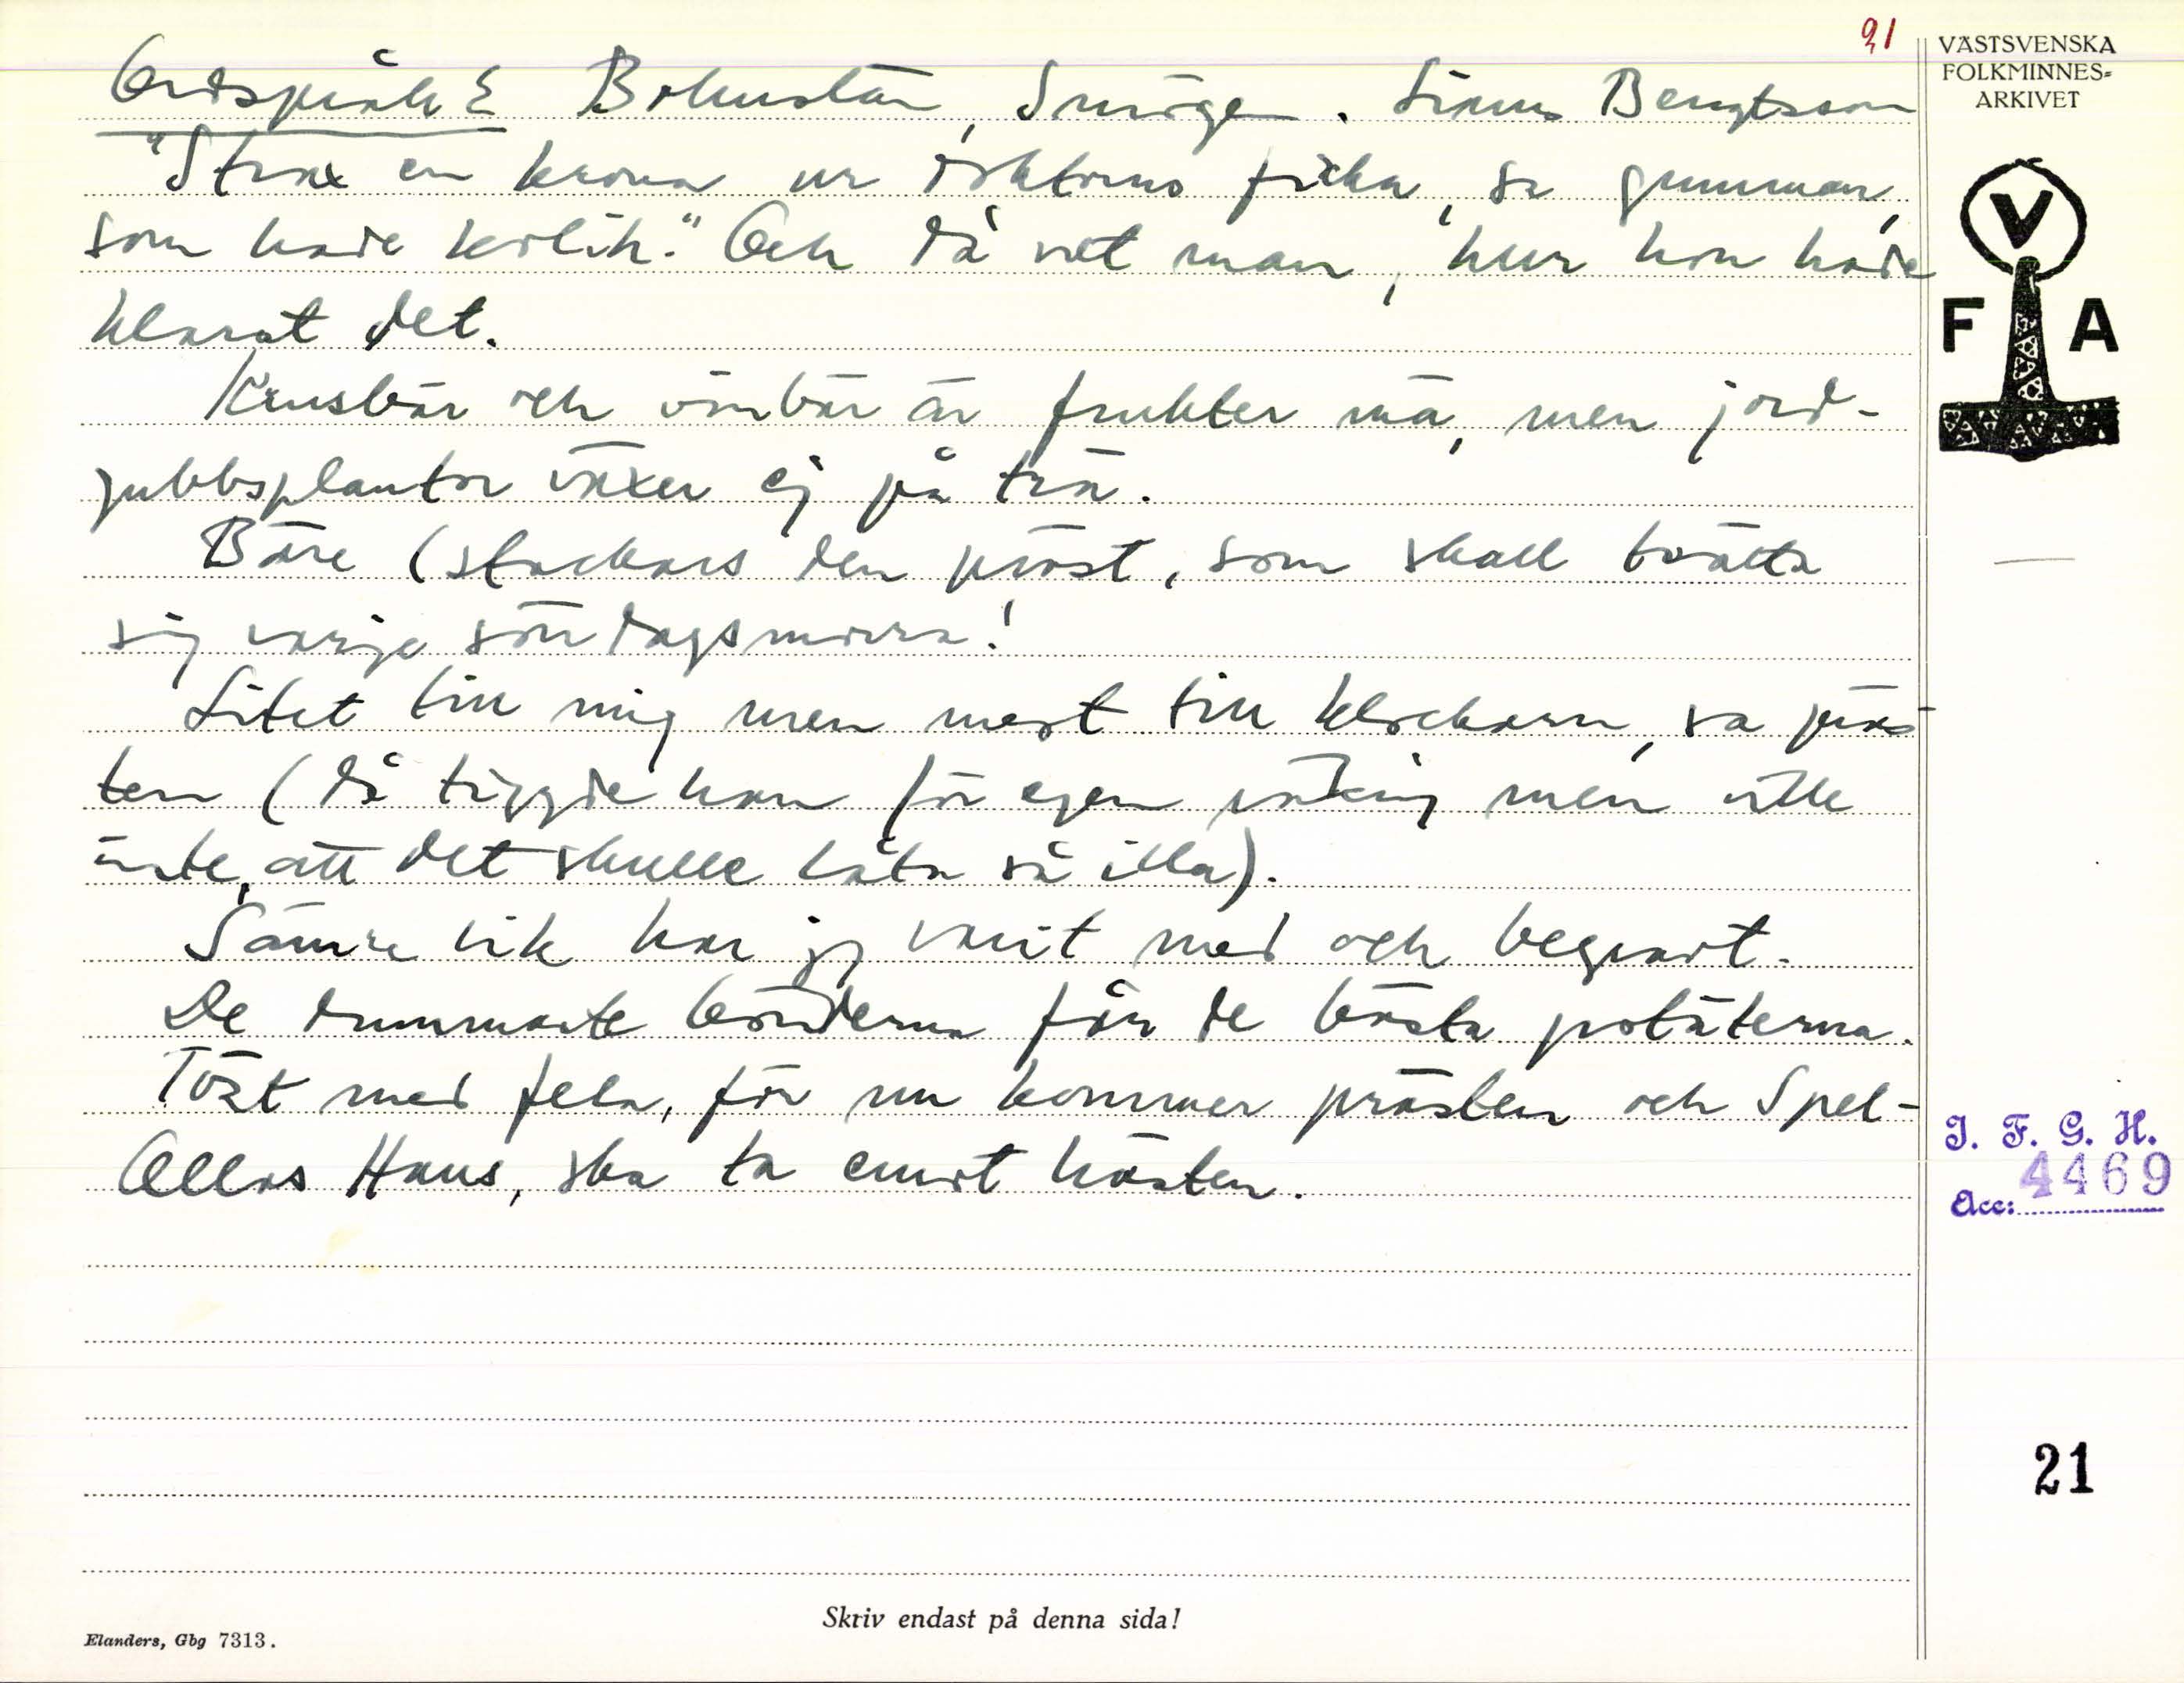 21
VÄSTSVENSKA
FOLKMINNES=
ARKIVET
Ordspråk E Bohuslän, Smögen. Linus Bengtsson
"Strax en krona ur doktorns ficka, sa gumman,
som hade kolik." Och då vet man, hur hon hade
klarat det.
Krusbär och vinbär är frukter må, men jord-
gubbsplantor växer ej på trä.
Bäre (stackars den präst, som skall tvätta
sig varje söndagsmorra!
Litet till mig men mest till klockarn, sa präs
ten (då tiggde han för egen räkning men ville
inte, att det skulle låta så illa).
Sämre lik har jg varit med och begravt.
De dummaste bönderna får de bästa potäterna.
Töst med fela, för nu kommer prästen och Spel-
Ollas Hans, ska ta emot hästen.
V
F A
I. F. G. H.
Acc: 4469
21
Skriv endast på denna sida!
Elanders, Gbg 7313.